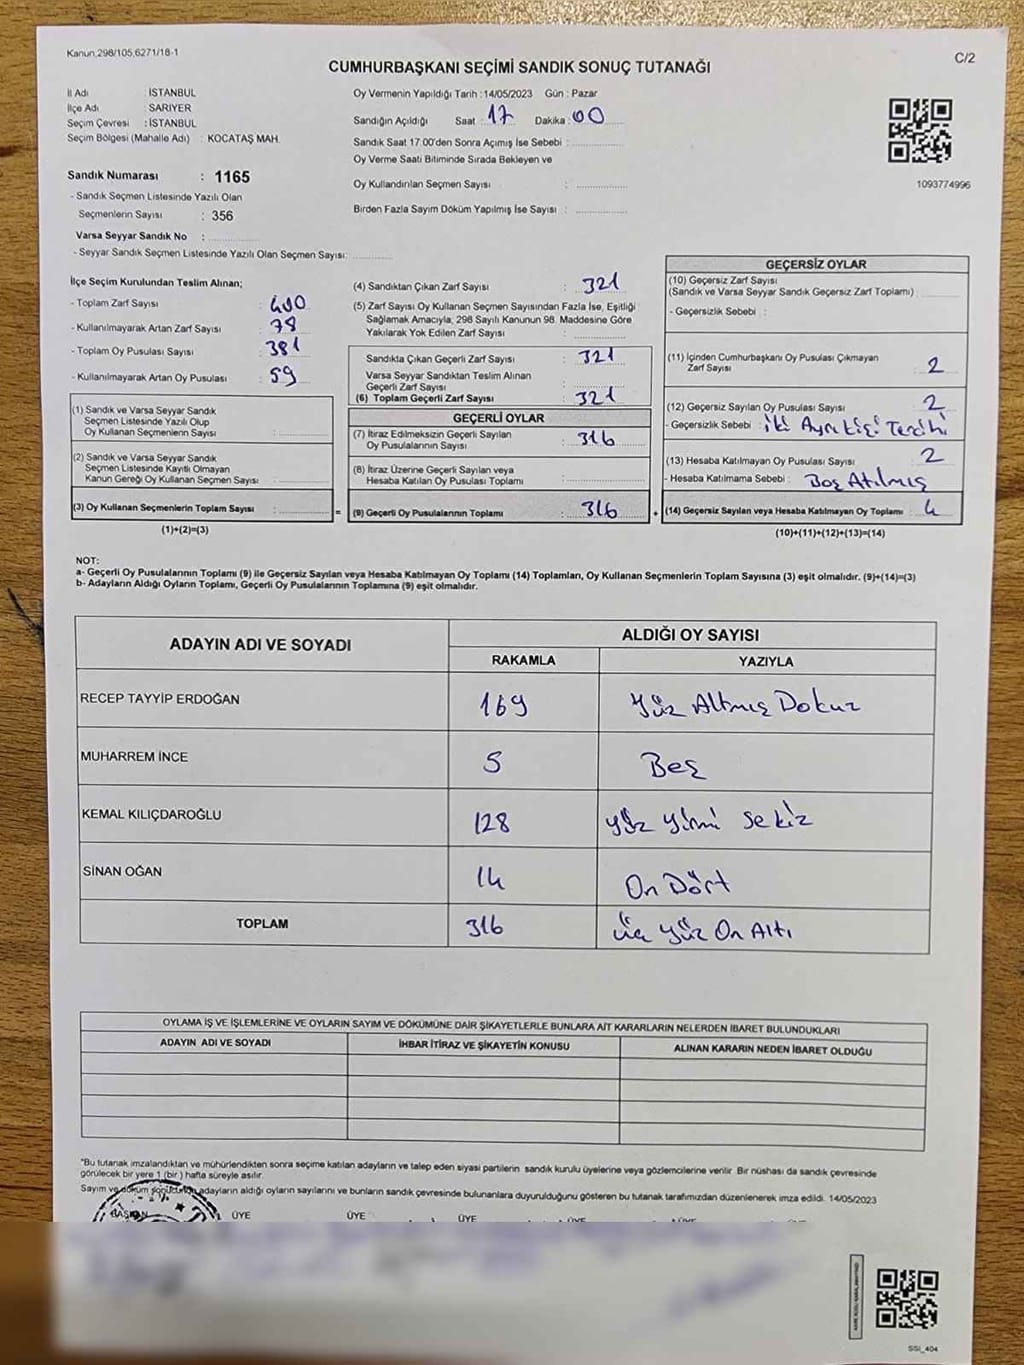 Kanun,298/105,6271/18-1
C/2
CUMHURBAŞKANI SEÇİMİ SANDIK SONUÇ TUTANAĞI
İl Adı : İSTANBUL
İlçe Adı : SARIYER
Seçim Çevresi : İSTANBUL
Seçim Bölgesi (Mahalle Adı) : KOCATAŞ MAH.
Sandık Numarası : 1165
- Sandık Seçmen Listesinde Yazılı Olan
Seçmenlerin Sayısı : 356
Varsa Seyyar Sandık No :
- Seyyar Sandık Seçmen Listesinde Yazılı Olan Seçmen Sayısı:
Oy Vermenin Yapıldığı Tarih :14/05/2023 Gün : Pazar
Sandığın Açıldığı Saat : 17 Dakika : 00
Sandık Saat 17.00'den Sonra Açımış İse Sebebi :
Oy Verme Saati Bitiminde Sırada Bekleyen ve
Oy Kullandırılan Seçmen Sayısı :
Birden Fazla Sayım Döküm Yapılmış İse Sayısı :
1093774996
İlçe Seçim Kurulundan Teslim Alınan;
- Toplam Zarf Sayısı : 400
- Kullanılmayarak Artan Zarf Sayısı : 79
- Toplam Oy Pusulası Sayısı : 381
- Kullanılmayarak Artan Oy Pusulası : 59
(1) Sandık ve Varsa Seyyar Sandık
Seçmen Listesinde Yazılı Olup
Oy Kullanan Seçmenlerin Sayısı :
(2) Sandık ve Varsa Seyyar Sandık
Seçmen Listesinde Kayıtlı Olmayan
Kanun Gereği Oy Kullanan Seçmen Sayısı :
(3) Oy Kullanan Seçmenlerin Toplam Sayısı :
(1)+(2)=(3)
(4) Sandıktan Çıkan Zarf Sayısı : 321
(5) Zarf Sayısı Oy Kullanan Seçmen Sayısından Fazla İse, Eşitliği
Sağlamak Amacıyla, 298 Sayılı Kanunun 98. Maddesine Göre
Yakılarak Yok Edilen Zarf Sayısı :
Sandıkta Çıkan Geçerli Zarf Sayısı : 321
Varsa Seyyar Sandıktan Teslim Alınan
Geçerli Zarf Sayısı :
(6) Toplam Geçerli Zarf Sayısı : 321
GEÇERLİ OYLAR
(7) İtiraz Edilmeksizin Geçerli Sayılan
Oy Pusulalarının Sayısı : 316
(8) İtiraz Üzerine Geçerli Sayılan veya
Hesaba Katılan Oy Pusulası Toplamı :
= (9) Geçerli Oy Pusulalarının Toplamı : 316
GEÇERSİZ OYLAR
(10) Geçersiz Zarf Sayısı
(Sandık ve Varsa Seyyar Sandık Geçersiz Zarf Toplamı) :
- Geçersizlik Sebebi :
(11) İçinden Cumhurbaşkanı Oy Pusulası Çıkmayan
Zarf Sayısı : 2
(12) Geçersiz Sayılan Oy Pusulası Sayısı : 2
- Geçersizlik Sebebi : İki Ayrı kişi Tercihi
(13) Hesaba Katılmayan Oy Pusulası Sayısı : 2
- Hesaba Katılmama Sebebi : Boş Atılmış
+ (14) Geçersiz Sayılan veya Hesaba Katılmayan Oy Toplamı : 4
(10)+(11)+(12)+(13)=(14)
NOT:
a- Geçerli Oy Pusulalarının Toplamı (9) ile Geçersiz Sayılan veya Hesaba Katılmayan Oy Toplamı (14) Toplamları, Oy Kullanan Seçmenlerin Toplam Sayısına (3) eşit olmalıdır. (9)+(14)=(3)
b- Adayların Aldığı Oyların Toplamı, Geçerli Oy Pusulalarının Toplamına (9) eşit olmalıdır.
ADAYIN ADI VE SOYADI
ALDIĞI OY SAYISI
RAKAMLA YAZIYLA
RECEP TAYYİP ERDOĞAN 169 Yüz Altmış Dokuz
MUHARREM İNCE 5 Beş
KEMAL KILIÇDAROĞLU 128 Yüz Yirmi Sekiz
SİNAN OĞAN 14 On Dört
TOPLAM 316 Üç Yüz On Altı
OYLAMA İŞ VE İŞLEMLERİNE VE OYLARIN SAYIM VE DÖKÜMÜNE DAİR ŞİKAYETLERLE BUNLARA AİT KARARLARIN NELERDEN İBARET BULUNDUKLARI
ADAYIN ADI VE SOYADI İHBAR İTİRAZ VE ŞİKAYETİN KONUSU ALINAN KARARIN NEDEN İBARET OLDUĞU
"Bu tutanak imzalandıktan ve mühürlendikten sonra seçime katılan adayların ve talep eden siyasi partilerin sandık kurulu üyelerine veya gözlemcilerine verilir. Bir nüshası da sandık çevresinde
görülecek bir yere 1 (bir) hafta süreyle asılır.
Sayım ve döküm sonucunda adayların aldığı oyların sayılarını ve bunların sandık çevresinde bulunanlara duyurulduğunu gösteren bu tutanak tarafımızdan düzenlenerek imza edildi. 14/05/2023
BAŞKAN ÜYE ÜYE ÜYE ÜYE ÜYE
SSI_404